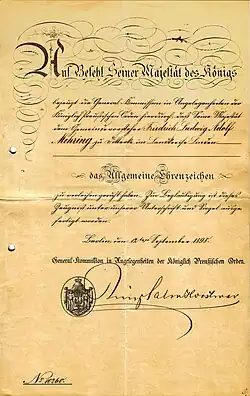 Auf Befehl Seiner Majestät des Königs
bezeugt die General-Kommission in Angelegenheiten der
Königlich Preußischen Orden hierdurch, daß Seine Majestät
dem Gemeindevorsteher Friedrich Ludwig Adolf
Mehring zu im Landkreise Linden
das Allgemeine Ehrenzeichen
zu verleihen geruht haben. Zur Beglaubigung ist dieses
Zeugniß unter unserer Unterschrift und Siegel ausge-
fertigt worden.
Berlin, den 12ten September 1895.
General-Kommission in Angelegenheiten der Königlich Preußischen Orden.